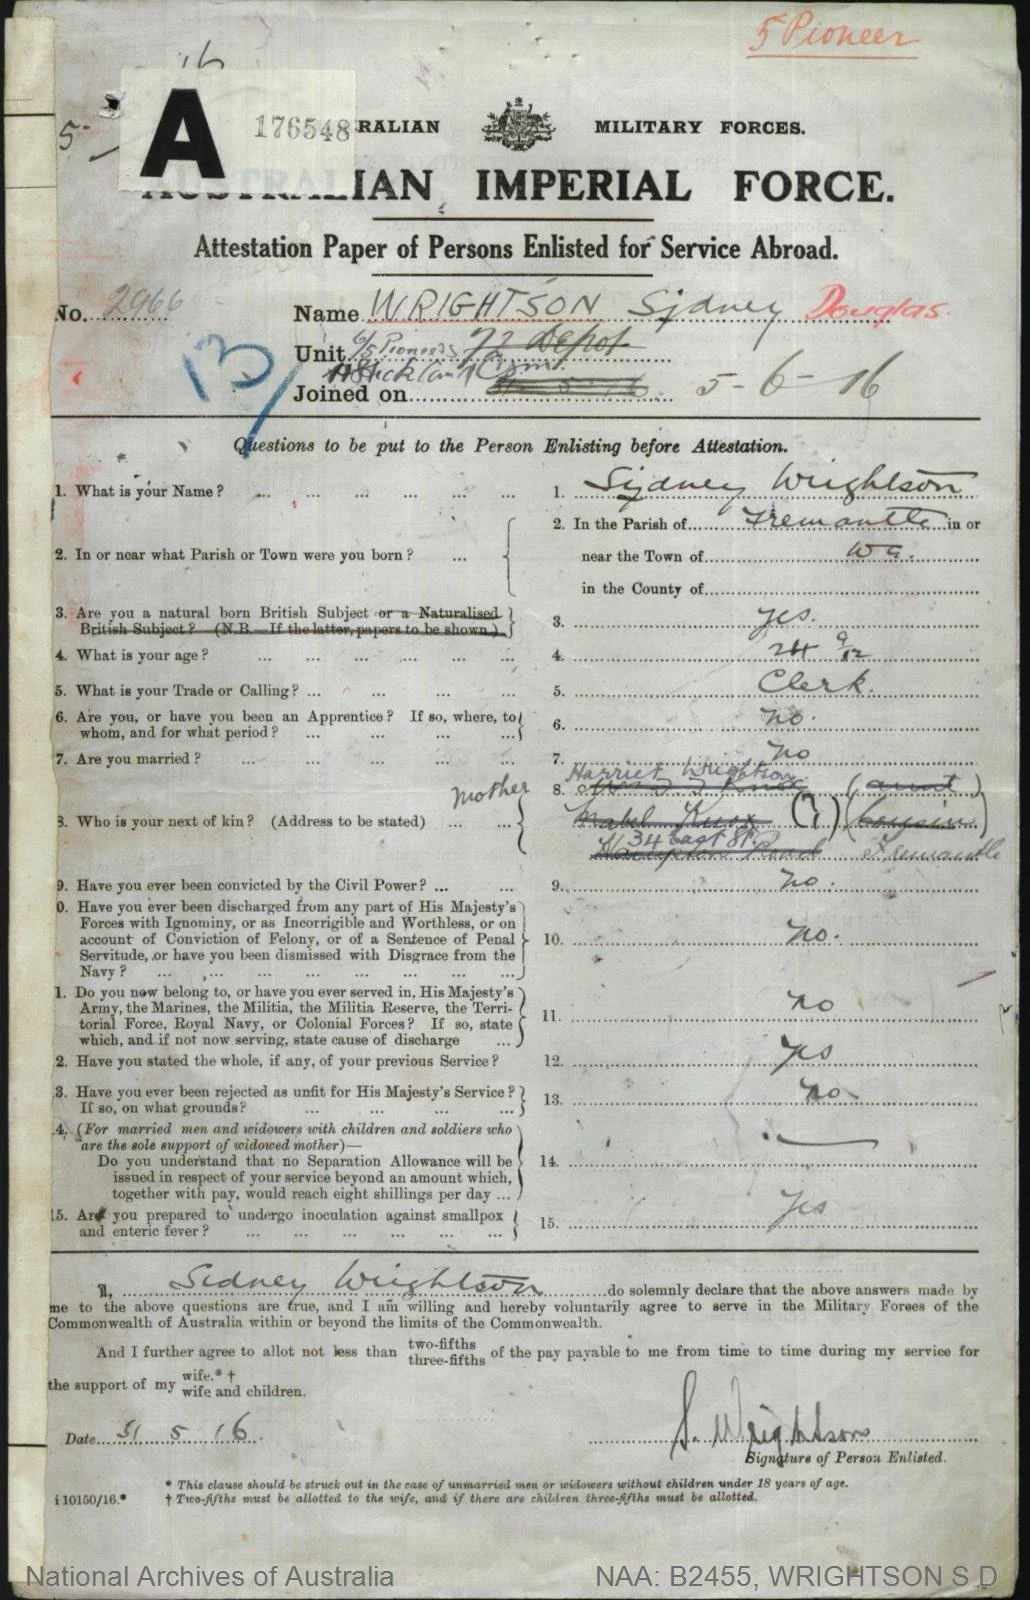 5 Pioneer
16
5
A 176548
RALIAN MILITARY FORCES.
AUSTRALIAN IMPERIAL FORCE.
Attestation Paper of Persons Enlisted for Service Abroad.
No. 2966 Name WRIGHTSON Sydney Douglas.
13 Unit 6/5 Pioneers 72 Depot
Joined on 31-5-16 5-6-16
Questions to be put to the Person Enlisting before Attestation.
1. What is your Name? ... ... ... ... ... 1. Sydney Wrightson
2. In or near what Parish or Town were you born? ... 2. In the Parish of Fremantle in or
near the Town of W A.
in the County of
3. Are you a natural born British Subject or a Naturalised
British Subject? (N.B.—If the latter, papers to be shown.) 3. yes.
4. What is your age? ... ... ... ... ... 4. 24 9/12
5. What is your Trade or Calling? ... ... ... ... 5. Clerk.
6. Are you, or have you been an Apprentice? If so, where, to
whom, and for what period? ... ... ... ... 6. no.
7. Are you married? ... ... ... ... ... 7. no
Harriet Wrightson
mother 8. Mrs Knox (aunt)
8. Who is your next of kin? (Address to be stated) ... ... Mabel Knox (?) (cousin)
34 East St.
Hampton Road Fremantle
9. Have you ever been convicted by the Civil Power? ... ... 9. no.
0. Have you ever been discharged from any part of His Majesty's
Forces with Ignominy, or as Incorrigible and Worthless, or on
account of Conviction of Felony, or of a Sentence of Penal
Servitude, or have you been dismissed with Disgrace from the
Navy? ... ... ... ... ... ... ... 10. no.
1. Do you now belong to, or have you ever served in, His Majesty's
Army, the Marines, the Militia, the Militia Reserve, the Terri-
torial Force, Royal Navy, or Colonial Forces? If so, state
which, and if not now serving, state cause of discharge ... 11. no
2. Have you stated the whole, if any, of your previous Service? 12. yes
3. Have you ever been rejected as unfit for His Majesty's Service?
If so, on what grounds? ... ... ... ... 13. no
4. (For married men and widowers with children and soldiers who
are the sole support of widowed mother)—
Do you understand that no Separation Allowance will be
issued in respect of your service beyond an amount which,
together with pay, would reach eight shillings per day ... 14.
15. Are you prepared to undergo inoculation against smallpox
and enteric fever? ... ... ... ... ... 15. yes
I, Sidney Wrightson do solemnly declare that the above answers made by
me to the above questions are true, and I am willing and hereby voluntarily agree to serve in the Military Forces of the
Commonwealth of Australia within or beyond the limits of the Commonwealth.
And I further agree to allot not less than two-fifths three-fifths of the pay payable to me from time to time during my service for
the support of my wife.* † wife and children.
Date 31 5 16. S. Wrightson
Signature of Person Enlisted.
* This clause should be struck out in the case of unmarried men or widowers without children under 18 years of age.
i 10150/16.* † Two-fifths must be allotted to the wife, and if there are children three-fifths must be allotted.
National Archives of Australia NAA: B2455, WRIGHTSON S D